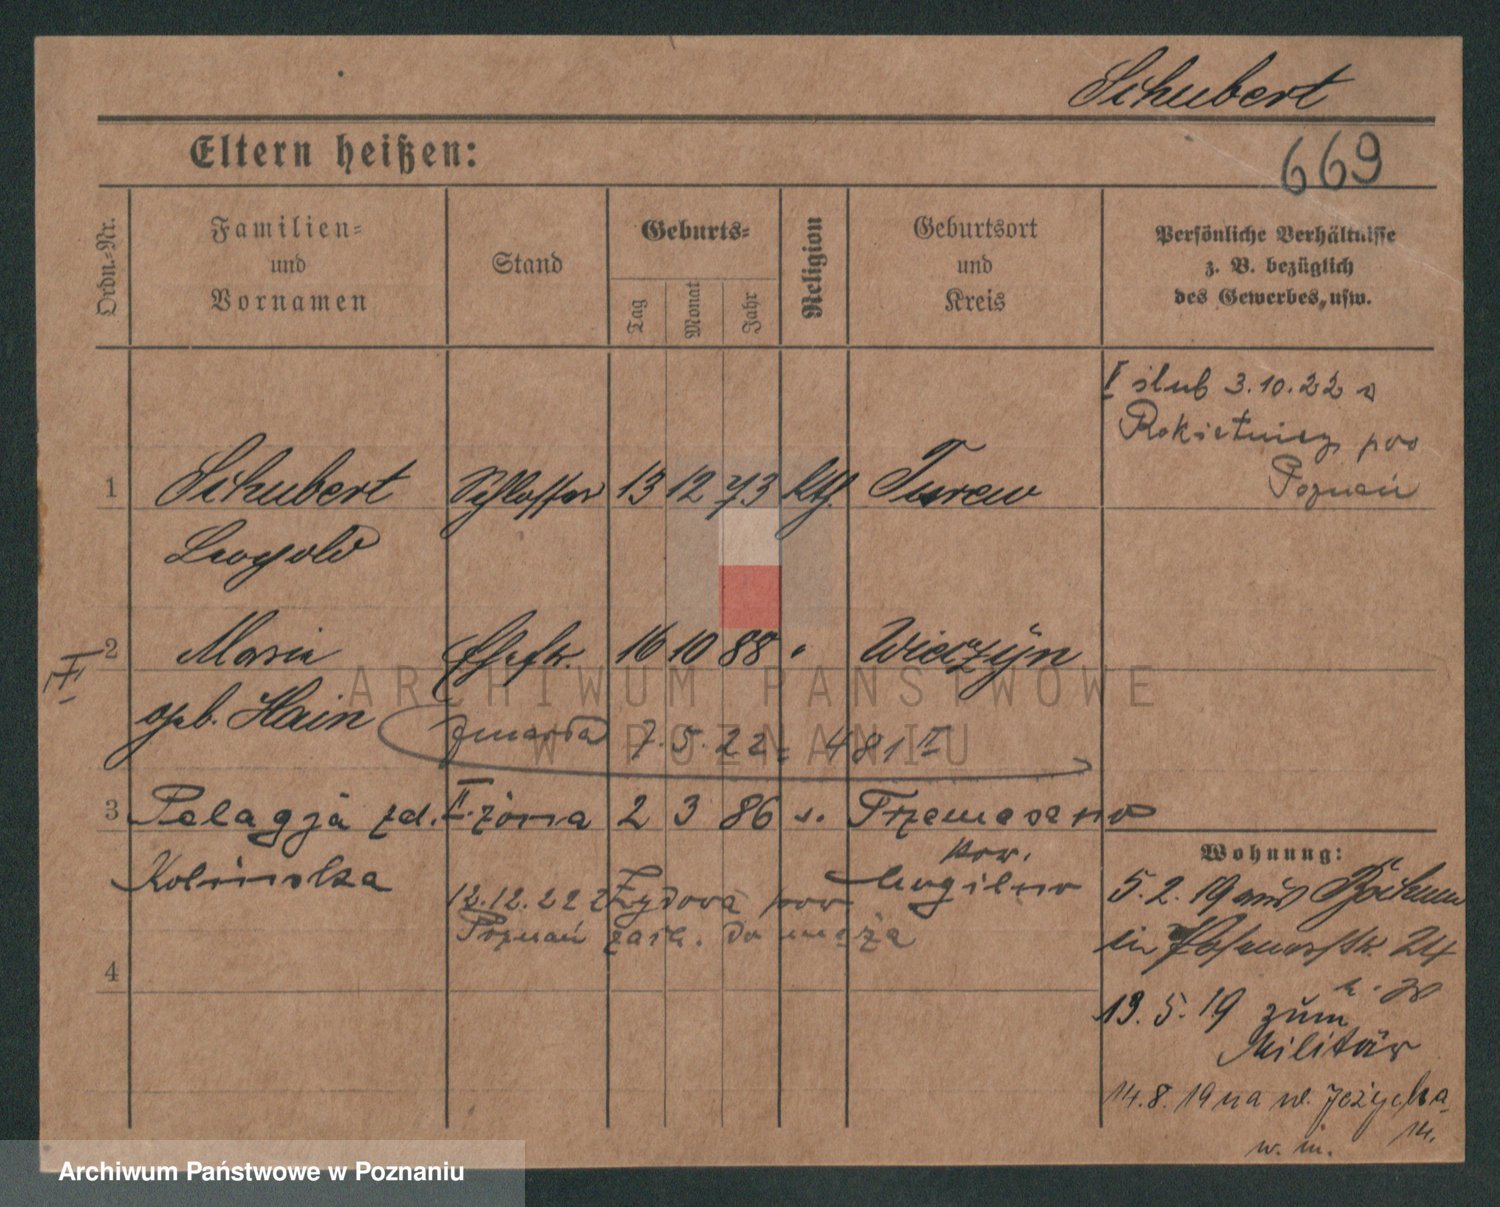 Schubert
Eltern heißen:
669
Ordn.-Nr.
Familien-
und
Vornamen
Stand
Geburts-
Tag
Monat
Jahr
Religion
Geburtsort
und
Kreis
Persönliche Verhältnisse
z. B. bezüglich
des Gewerbes, usw.
I ślub 3.10.22 w
Rokietnicy pow
Poznań
1 Schubert Schlosser 13 12 73 kth. Turew
Leopold
2 Maria Ehefr. 16 10 88 " Wierzyn
II
geb. Hain
zmarła 7.5.22 481
3 Pelagja zd. II żona 2 3 86 Trzemeszno
Kolinska
pow.
Mogilno
12.12.22 z Żydowa pow
Poznań do męża
4
Wohnung:
5.2.19 aus Bochum
in Posenerstr. 24
19.5.19 zum
Militär
14.8.19 na w. Jeżycka
14.
w. m.
ARCHIWUM PAŃSTWOWE
W POZNANIU
Archiwum Państwowe w Poznaniu